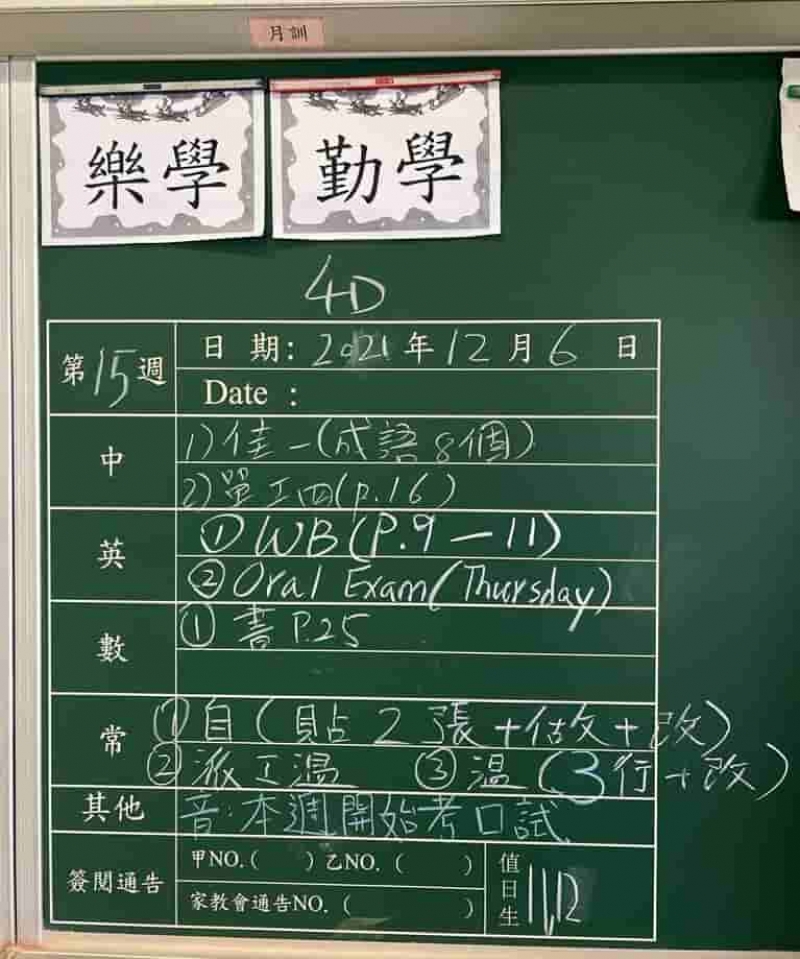 月訓
樂學
勤學
4D
第15週
日 期：2021年12月6日
Date :
中
1)佳一(成語8個)
2)單工四(P.16)
英
①WB(P.9-11)
②Oral Exam(Thursday)
數
①書P.25
常
①自(貼2張+做+改)
②派工溫 ③溫(3行+改)
其他
音:本週開始考口試
簽閱通告
甲NO.( )乙NO.( )
家教會通告NO.( )
值日生
11,12